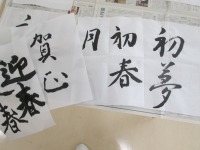 初夢
初春
月
賀正
迎春
春